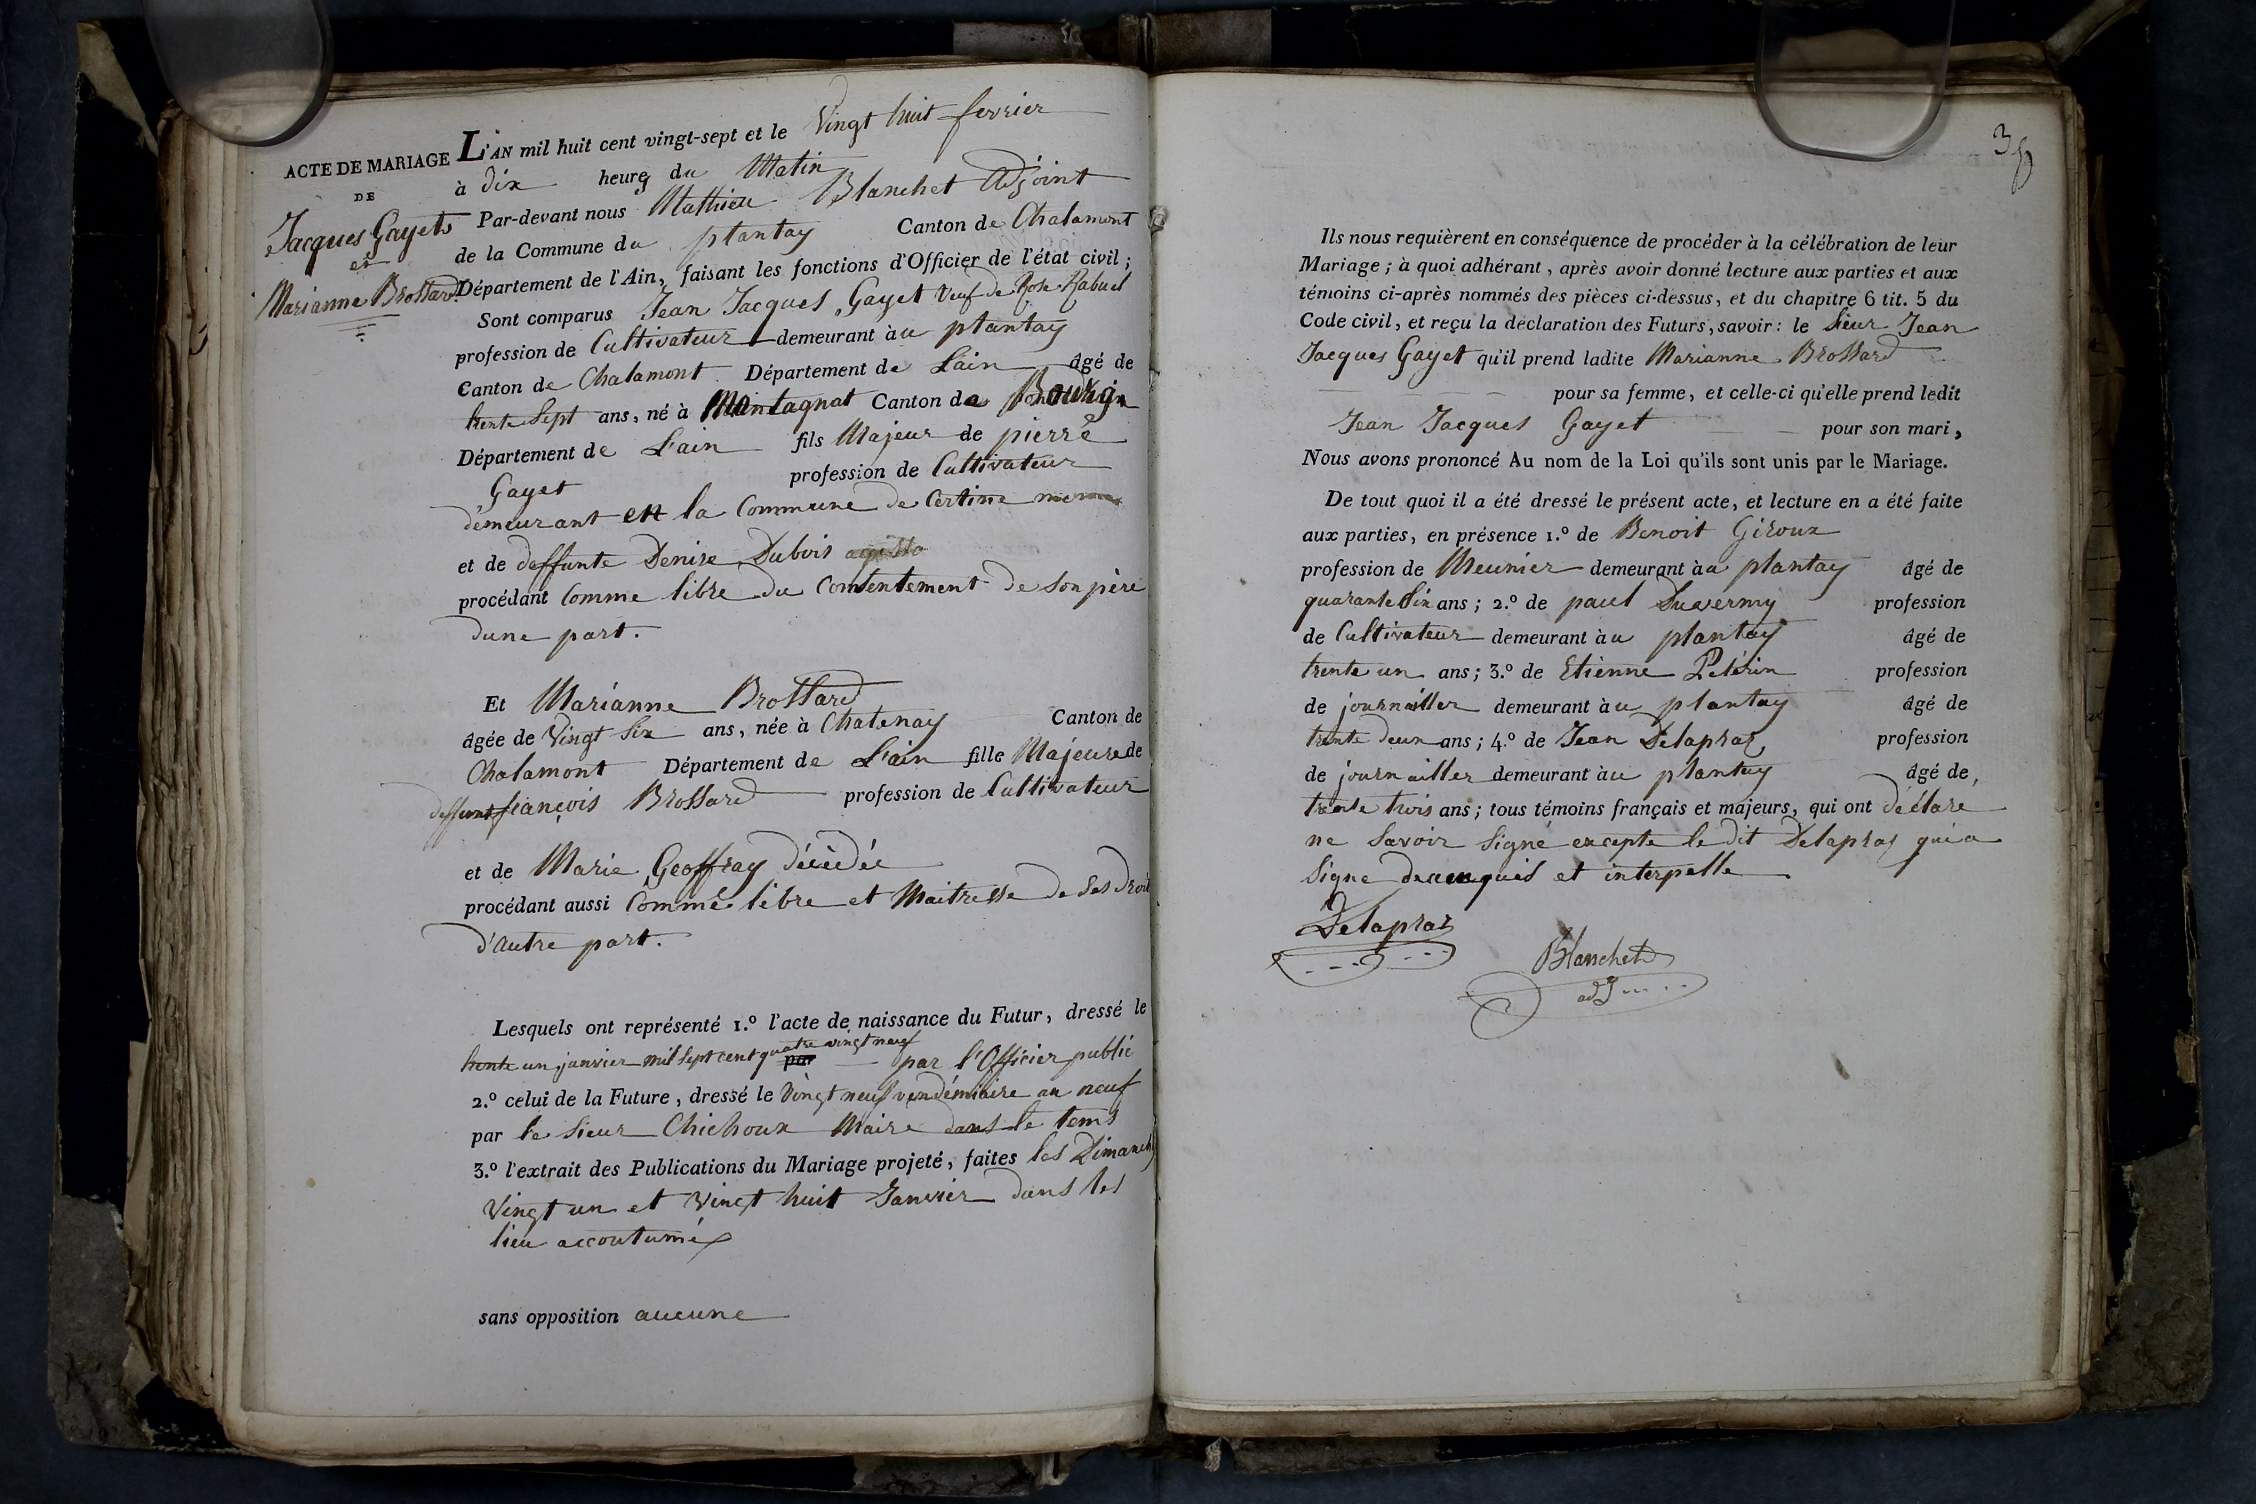 ACTE DE MARIAGE
DE
Jacques Gayet
et
Marianne Brossard
L'AN mil huit cent vingt-sept et le Vingt huit fevrier
à dix heures du Matin
Par-devant nous Mathieu Blanchet Adjoint
de la Commune du plantay Canton de Chalamont
Département de l'Ain, faisant les fonctions d'Officier de l'état civil;
Sont comparus Jean Jacques Gayet Veuf de Rose Rabuel
profession de Cultivateur demeurant àu plantay
Canton de Chalamont Département de L'ain âgé de
trente Sept ans, né à Montagnat Canton de Bourg
Département de L'ain fils Majeur de pierre
Gayet profession de Cultivateur
demeurant en la Commune de Certine
et de deffunte Denise Dubois
procédant Comme libre du Consentement de son père
dune part.
Et Marianne Brossard
âgée de Vingt Six ans, née à Chatenay Canton de
Chalamont Département de L'ain fille Majeure de
deffunt françois Brossard profession de Cultivateur
et de Marie Geoffray décédée
procédant aussi Comme libre et Maitresse de Ses droit
d'autre part.
Lesquels ont représenté 1.º l'acte de naissance du Futur, dressé le
trente un janvier mil Sept cent quatre vingt neuf par par l'Officier public
2.º celui de la Future, dressé le Vingt neuf vendémiaire an neuf
par le Sieur Chichoux Maire dans le tems
3.º l'extrait des Publications du Mariage projeté, faites les Dimanch
Vingt un et Vingt huit Janvier dans les
lieu accoutumé
sans opposition aucune
Ils nous requièrent en conséquence de procéder à la célébration de leur
Mariage; à quoi adhérant, après avoir donné lecture aux parties et aux
témoins ci-après nommés des pièces ci-dessus, et du chapitre 6 tit. 5 du
Code civil, et reçu la déclaration des Futurs, savoir: le Sieur Jean
Jacques Gayet qu'il prend ladite Marianne Brossard
pour sa femme, et celle-ci qu'elle prend ledit
Jean Jacques Gayet pour son mari,
Nous avons prononcé Au nom de la Loi qu'ils sont unis par le Mariage.
De tout quoi il a été dressé le présent acte, et lecture en a été faite
aux parties, en présence 1.º de Benoit Giroux
profession de Meunier demeurant àu plantay âgé de
quarante Six ans; 2.º de paul Duvermy profession
de Cultivateur demeurant àu plantay âgé de
trente un ans; 3.º de Etienne Pelérin profession
de journailler demeurant àu plantay âgé de
trente deux ans; 4.º de Jean Delapraz profession
de journailler demeurant àu plantay âgé de
trente trois ans; tous témoins français et majeurs, qui ont déclaré
ne Savoir Signé excepte le dit Delapraz qui a
Signe de ce requis et interpelle
Delapraz
Blanchet
adj